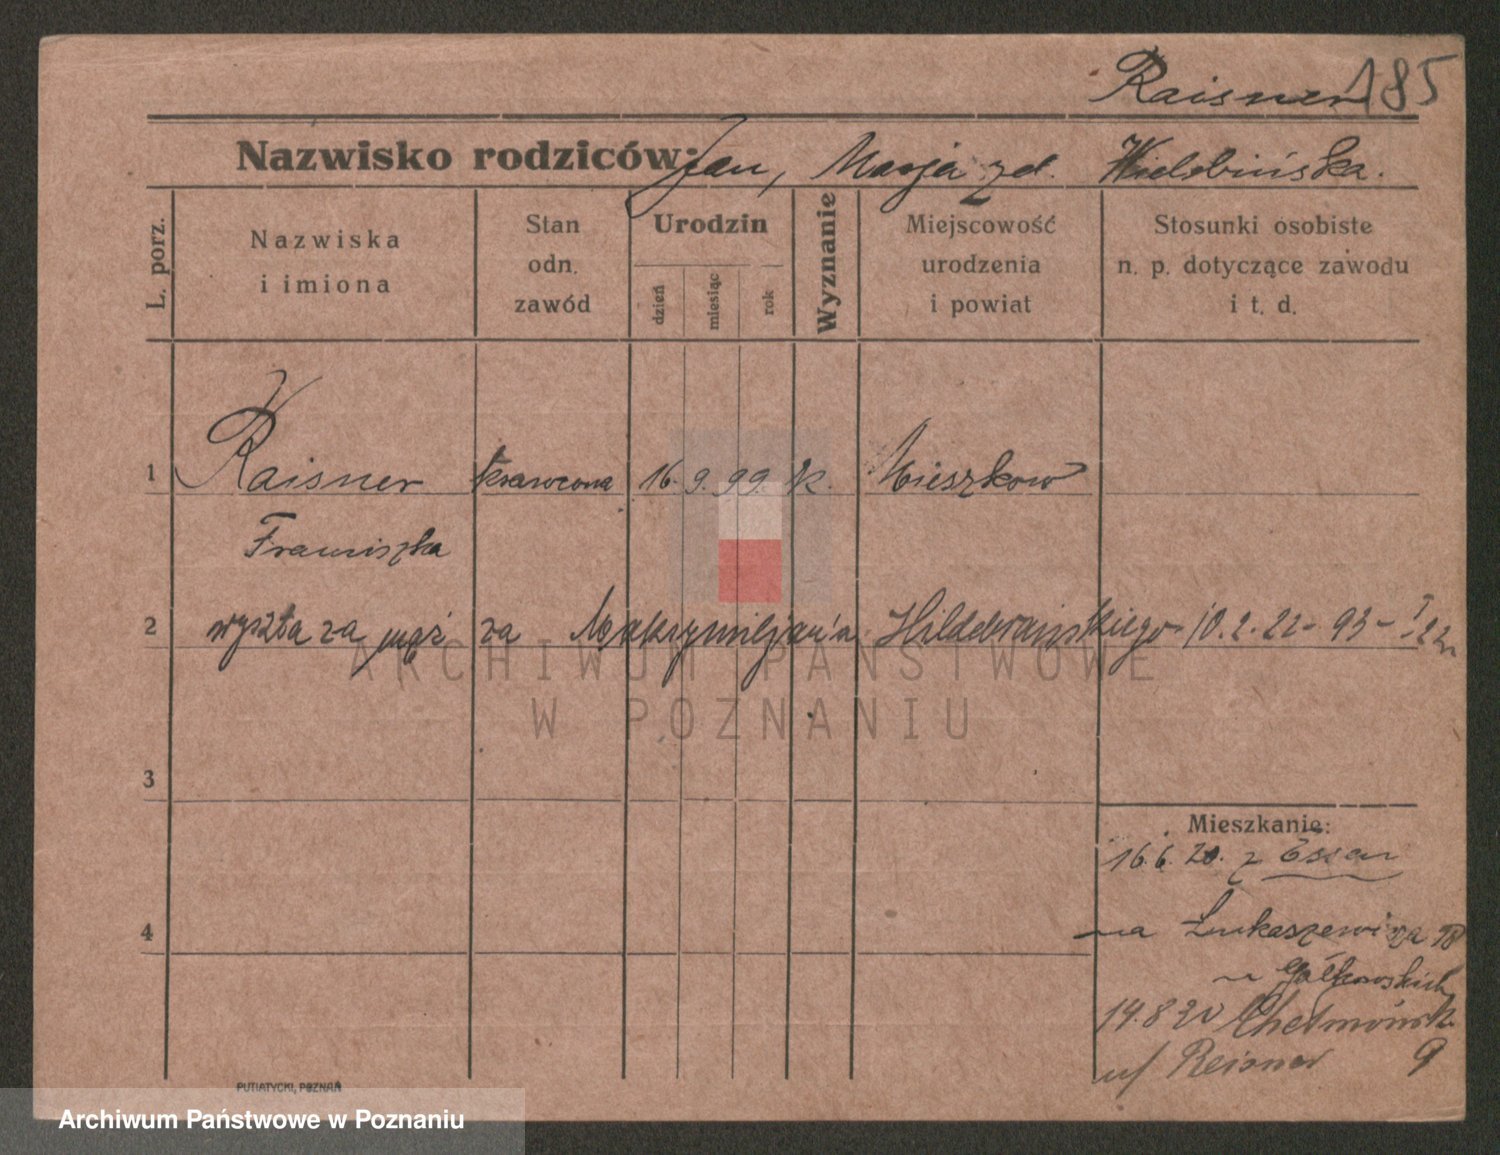 Raisner 185
Nazwisko rodziców: Jan, Marja zd. Wielebińska.
L. porz.
Nazwiska
i imiona
Stan
odn.
zawód
Urodzin
dzień
miesiąc
rok
Wyznanie
Miejscowość
urodzenia
i powiat
Stosunki osobiste
n. p. dotyczące zawodu
i t. d.
1 Raisner krawcowa 16. 9. 99. k. Mieszkow
Franciszka
2 wyszła za mąż za Maksymiljan'a Hildebrańskiego 10.2.22 - 93 -
ARCHIWUM PAŃSTWOWE
W POZNANIU
3
Mieszkanie:
16.6.20. z Essen
4
na Łukaszewicza
u Gałkowskich
14.8 20 Chełmońsk. 9
u/ Reisner
PUTIATYCKI, POZNAŃ
Archiwum Państwowe w Poznaniu